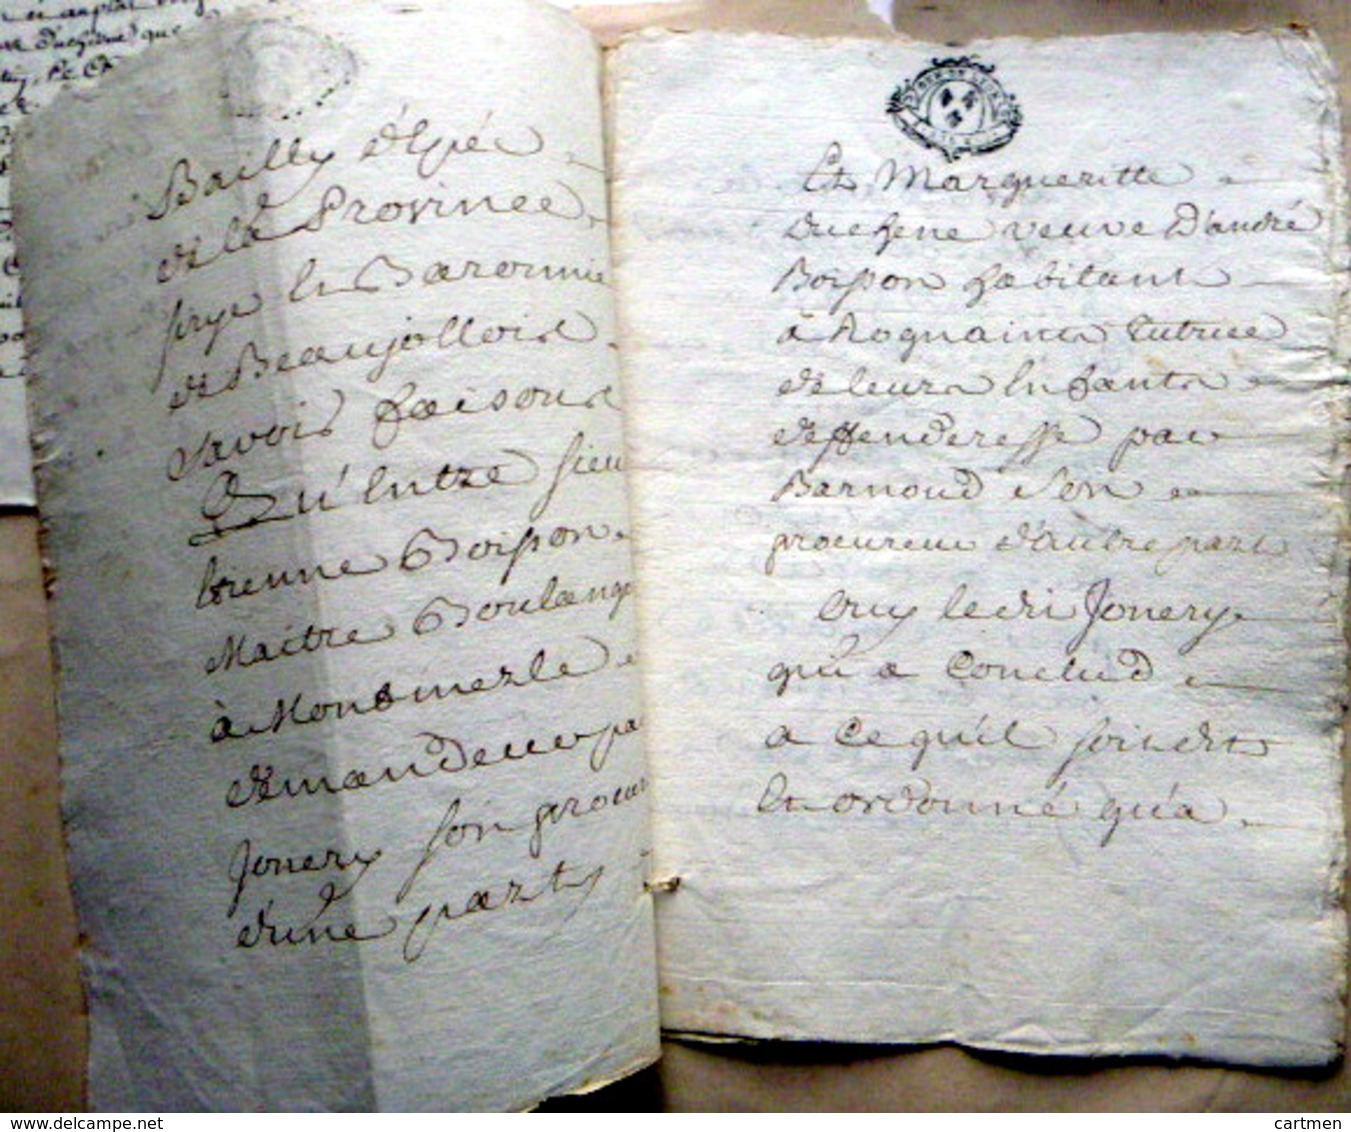 Bailly d'Epée
de la Province
sirye Et Baronnie
de Beaujollois
savoir faisons
Qu'Entre sieu
Etienne Boisson
Maitre Boulange
à Monsmerle
demandeur pa
Jonery son procur
d'une party
Et Margueritte
Duchene veuve D'andré
Boisson habitant
à Rognains tutrice
de leurs Enfants
deffenderesse par
Barnoud son
procureur d'autre part
Ouy ledit Jonery
qui a Conclud
a Ce qu'il soit dit
Et ordonné qu'a
cartmen